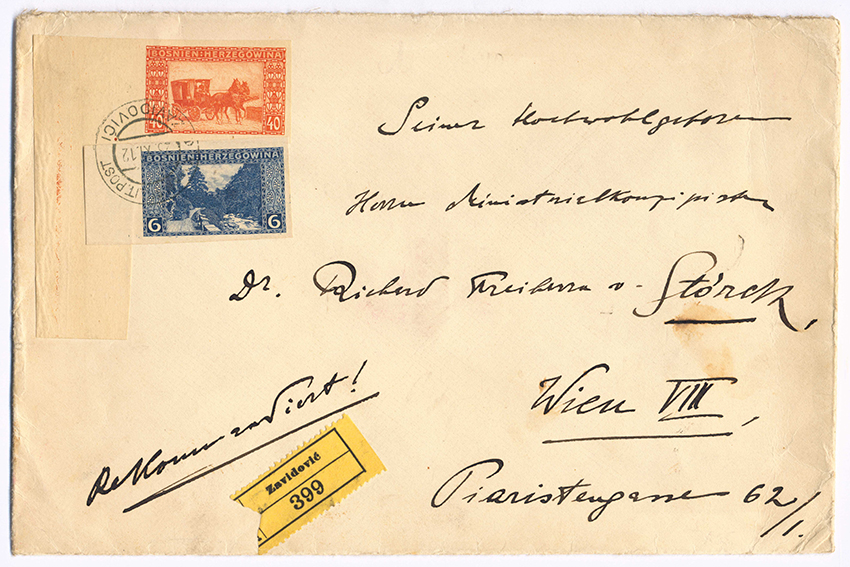 BOSNIEN-HERZEGOWINA
40 40
BOSNIEN-HERZEGOWINA
6 6
ZAVIDOVIĆI
XI.12
MILIT.POST
Seiner Hochwohlgeboren
Herrn Ministerialkonzipisten
Dr. Richard Freiherrn v. Störck,
Wien VIII,
Piaristengasse 62/I.
Rekommandiert!
Zavidović
399